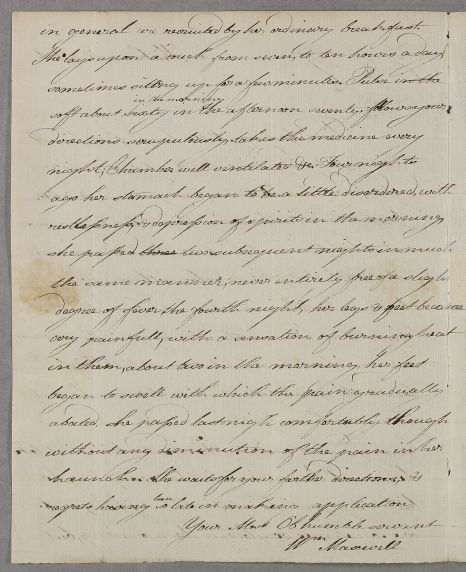 in general we recruited by her ordinary breakfast
She lays upon a couch from seven, to ten hours a day
sometimes sitting up for a few minutes. Pulse in the
in the morning
soft about sixty in the afternoon seventy, follows your
directions scrupulously, takes the medicine every
night, Chamber well ventilated &c. Four nights
ago her stomach began to be a little disordered, with
restlessness & oppression of spirits in the morning
she passed three two subsequent nights in much
the same manner; never entirely free of a sligh
degree of fever the fourth night, her legs & feet became
very painfull, with a sensation of burning heat
in them, about two in the morning, her feet
began to swell with which the pain gradually
abated. she passed last nigh comfortably, though
without any diminution of the pain in her
haunch. She waits for your farthr directions, &
regrets having been so late in making application
Your Most Ob humble servant
Wm Maxwell